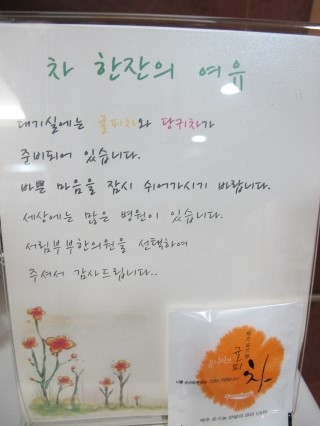 차 한잔의 여유
대기실에는 귤피차와 당귀차가
준비되어 있습니다.
바쁜 마음을 잠시 쉬어가시기 바랍니다.
세상에는 많은 병원이 있습니다.
서림부부한의원을 선택하여
주셔서 감사드립니다..
귤피
차